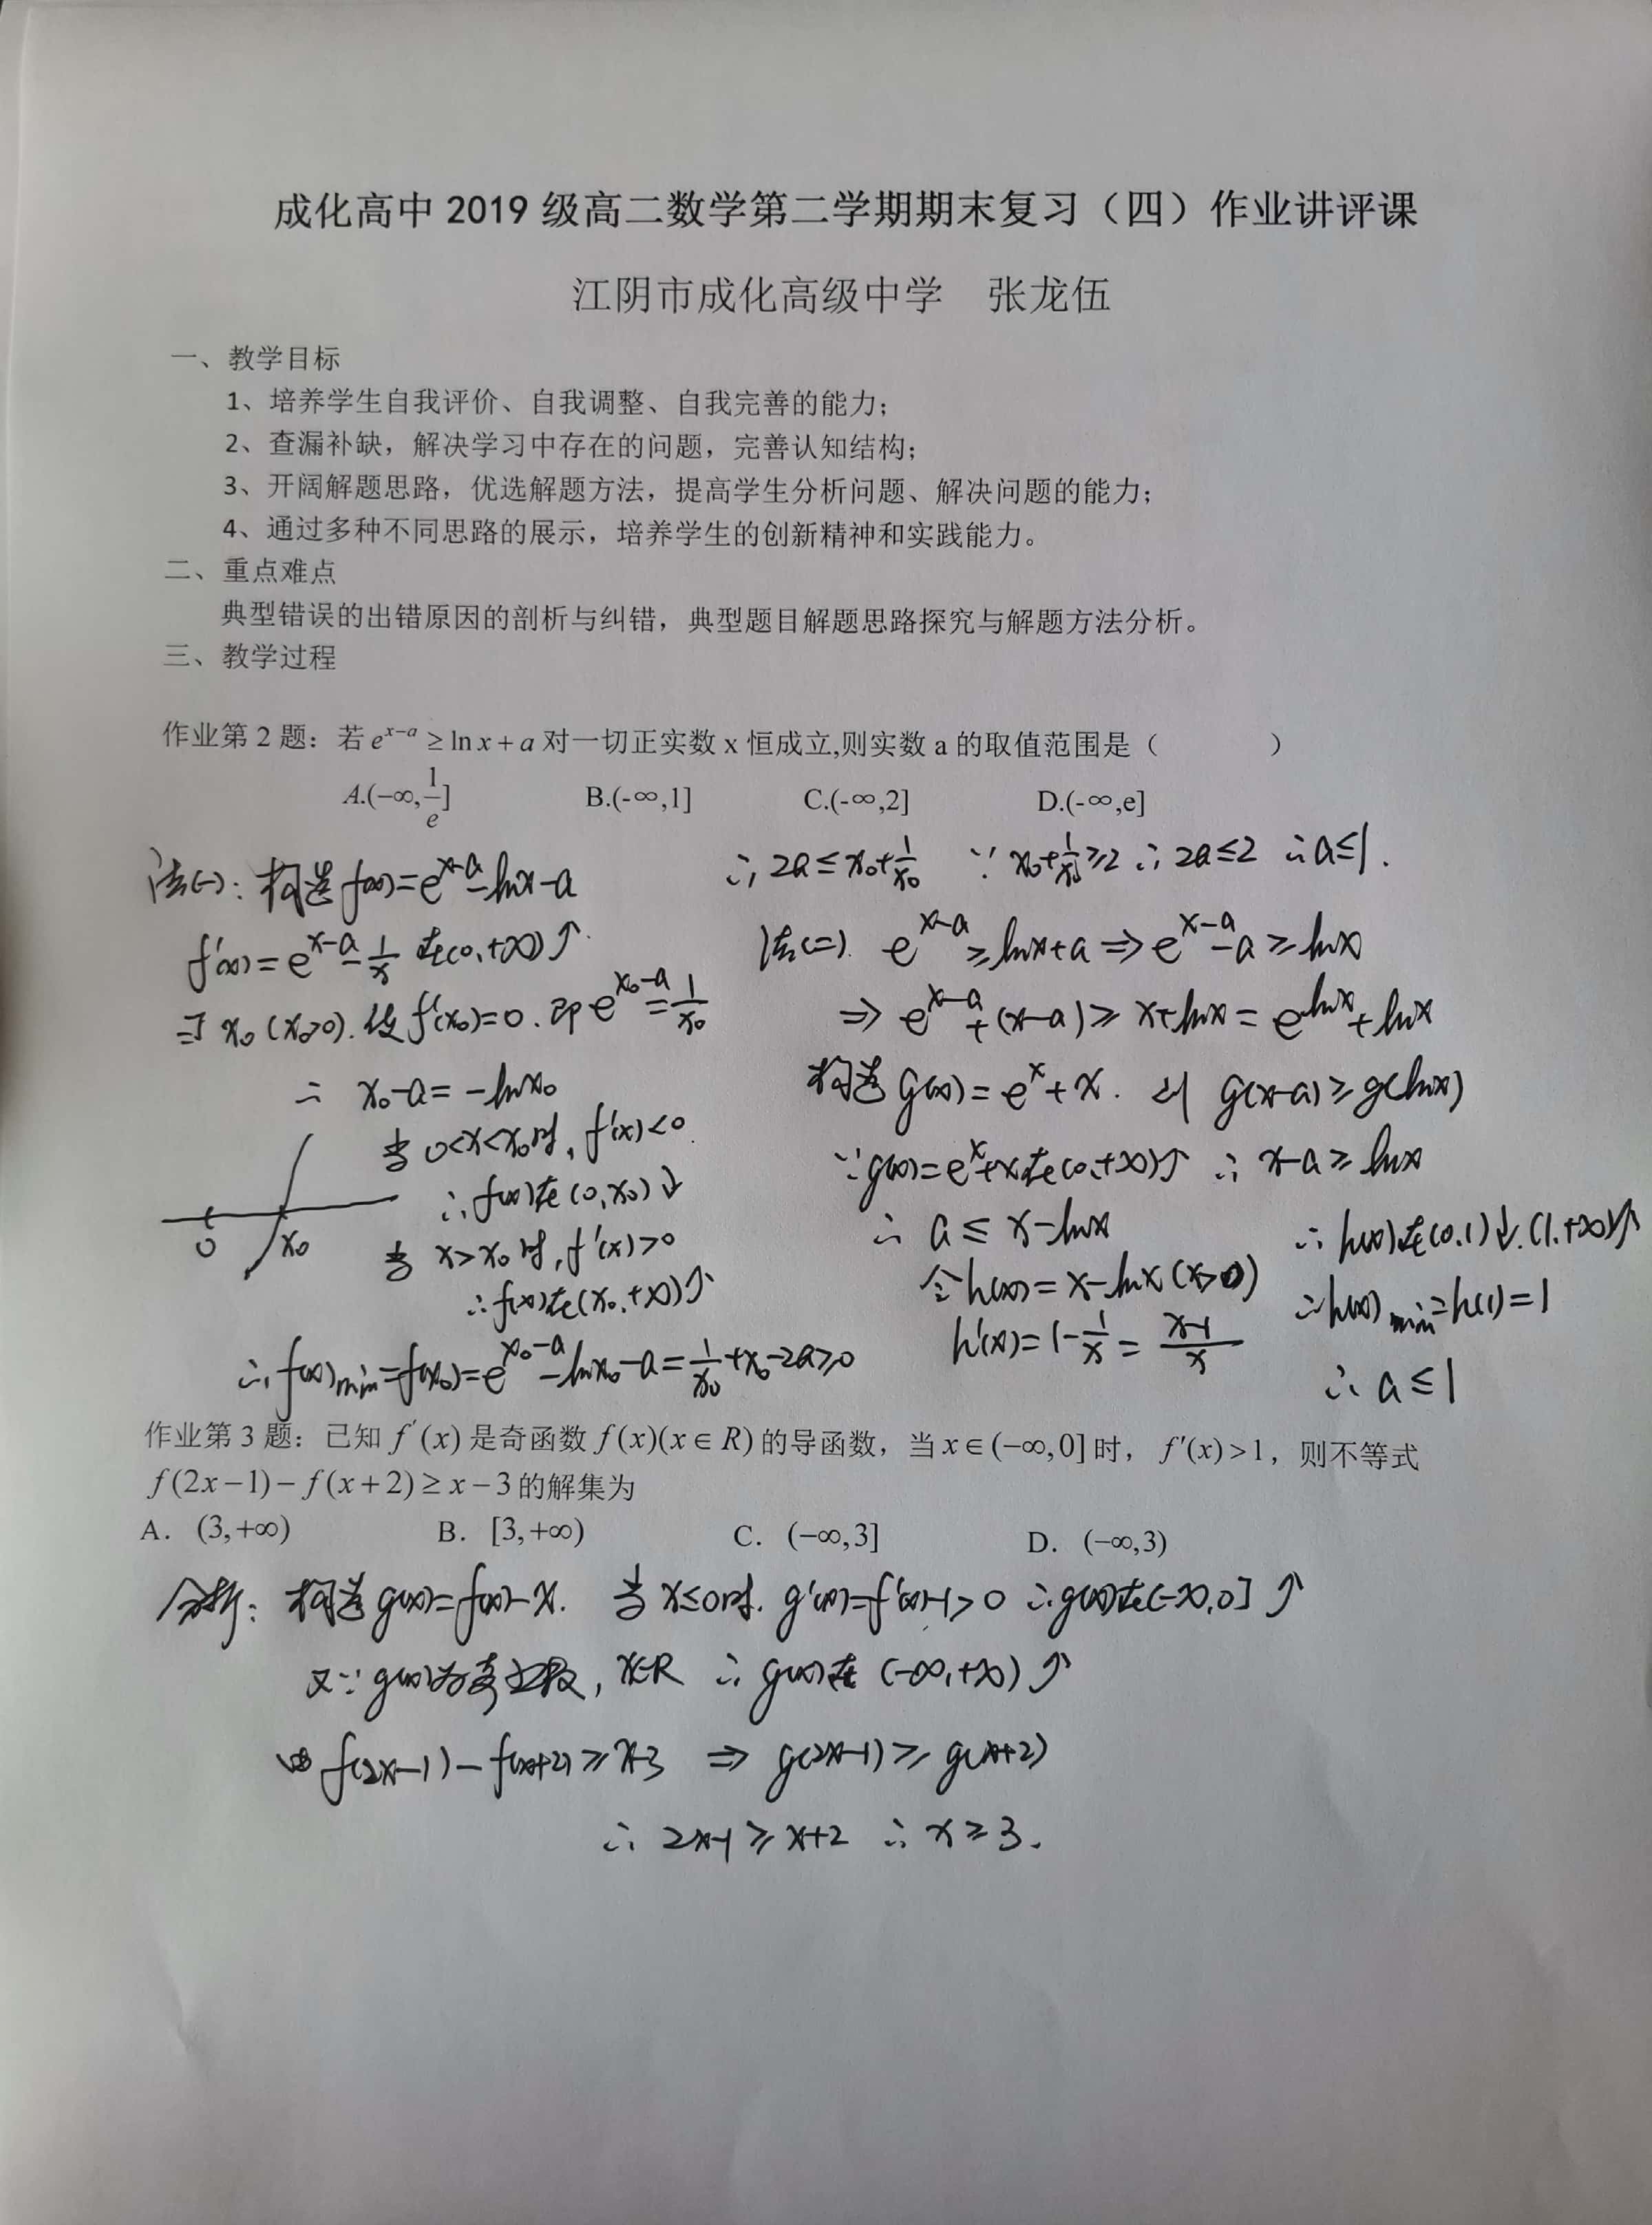 成化高中2019级高二数学第二学期期末复习（四）作业讲评课
江阴市成化高级中学 张龙伍
一、教学目标
1、培养学生自我评价、自我调整、自我完善的能力；
2、查漏补缺，解决学习中存在的问题，完善认知结构；
3、开阔解题思路，优选解题方法，提高学生分析问题、解决问题的能力；
4、通过多种不同思路的展示，培养学生的创新精神和实践能力。
二、重点难点
典型错误的出错原因的剖析与纠错，典型题目解题思路探究与解题方法分析。
三、教学过程
作业第2题：若 e^{x-a} ≥ ln x + a 对一切正实数 x 恒成立,则实数 a 的取值范围是（ ）
A.(-∞,1/e] B.(-∞,1] C.(-∞,2] D.(-∞,e]
法(一)：构造f(x)=e^{x-a}-lnx-a
f'(x)=e^{x-a}-1/x 在(0,+∞)↑.
∃x₀(x₀>0).使f'(x₀)=0.即e^{x₀-a}=1/x₀
∴ x₀-a=-lnx₀
当0<x<x₀时,f'(x)<0.
∴f(x)在(0,x₀)↓
0 x₀
当x>x₀时,f'(x)>0
∴f(x)在(x₀,+∞)↑
∴f(x)min=f(x₀)=e^{x₀-a}-lnx₀-a=1/x₀+x₀-2a≥0
∴2a≤x₀+1/x₀ ∵x₀+1/x₀≥2 ∴2a≤2 ∴a≤1.
法(二). e^{x-a}≥lnx+a⇒e^{x-a}-a≥lnx
⇒e^{x-a}+(x-a)≥x+lnx=e^{lnx}+lnx
构造g(x)=e^x+x. 则g(x-a)≥g(lnx)
∵g(x)=e^x+x在(0,+∞)↑ ∴x-a≥lnx
∴a≤x-lnx
令h(x)=x-lnx(x>0)
h'(x)=1-1/x=(x-1)/x
∴h(x)在(0,1)↓.(1,+∞)↑
∴h(x)min=h(1)=1
∴a≤1
作业第3题：已知 f'(x) 是奇函数 f(x)(x∈R) 的导函数，当 x∈(-∞,0] 时，f'(x)>1，则不等式
f(2x-1)-f(x+2)≥x-3 的解集为
A. (3,+∞) B. [3,+∞) C. (-∞,3] D. (-∞,3)
分析：构造g(x)=f(x)-x. 当x≤0时.g'(x)=f'(x)-1>0 ∴g(x)在(-∞,0]↑
又∵g(x)为奇函数,x∈R ∴g(x)在(-∞,+∞)↑
由f(2x-1)-f(x+2)≥x-3 ⇒ g(2x-1)≥g(x+2)
∴2x-1≥x+2 ∴x≥3.